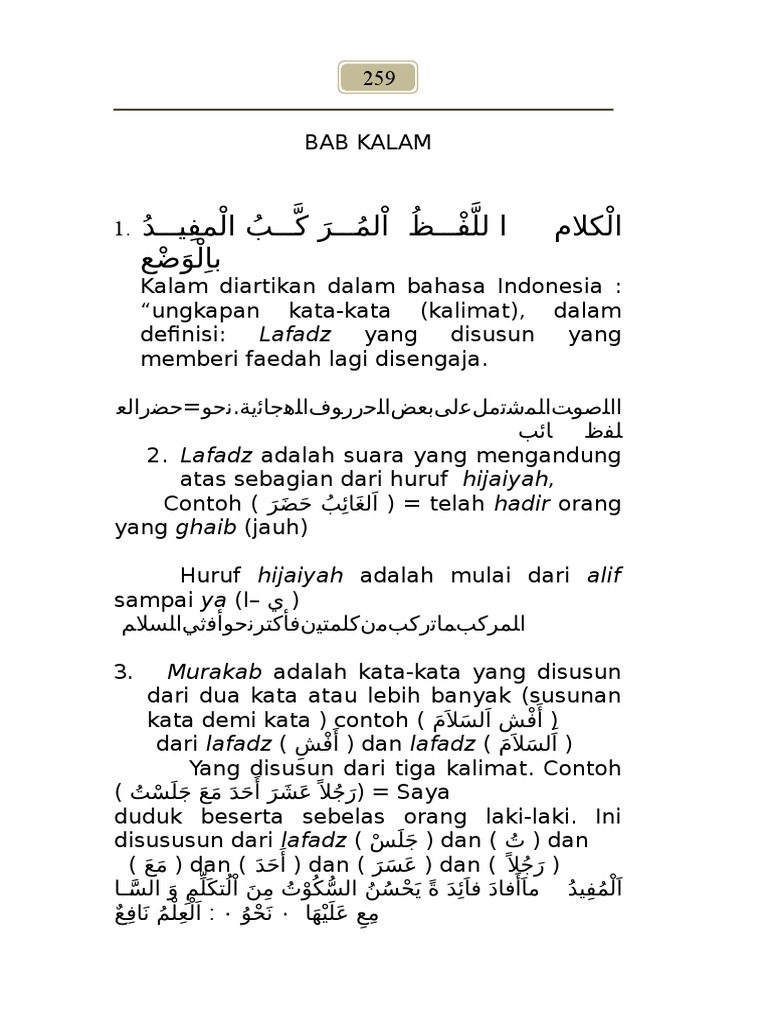 259
BAB KALAM
1. الْكلام ا للَّفْـــظُ اْلمُـــرَ كَّـــبُ الْمفِيـــدُ
بِالْوَضْعِ
Kalam diartikan dalam bahasa Indonesia :
“ungkapan kata-kata (kalimat), dalam
definisi: Lafadz yang disusun yang
memberi faedah lagi disengaja.
االصوت المشتمل على بعض الحرروف الهجائية. نحو=حضر الغ
لفظ ائب
2. Lafadz adalah suara yang mengandung
atas sebagian dari huruf hijaiyah,
Contoh ( اَلغَائِبُ حَضَرَ ) = telah hadir orang
yang ghaib (jauh)
Huruf hijaiyah adalah mulai dari alif
sampai ya (ا– ي )
المركب ماتركب من كلمتين فأكتر نحو أفثي السلام
3. Murakab adalah kata-kata yang disusun
dari dua kata atau lebih banyak (susunan
kata demi kata ) contoh ( أَفْشِ اَلسَلاَمَ )
dari lafadz ( أَفْشِ ) dan lafadz ( اَلسَلاَمَ )
Yang disusun dari tiga kalimat. Contoh
( رَجُلاً عَشَرَ أَحَدَ مَعَ جَلَسْتُ) = Saya
duduk beserta sebelas orang laki-laki. Ini
disususun dari lafadz ( جَلَسْ ) dan ( تُ ) dan
( مَعَ ) dan ( أَحَدَ ) dan ( عَسَرَ ) dan ( رَجُلاً )
اَلْمُفِيدُ ماَأَفادَ فاَئِدَ ةً يَحْسُنُ السُّكُوْتُ مِنَ اْلُتكَلِّمِ وَ السَّـا
مِعِ عَلَيْهَا ٠ نَحْوُ ٠ : اَلْعِلْمُ نَافِعٌ